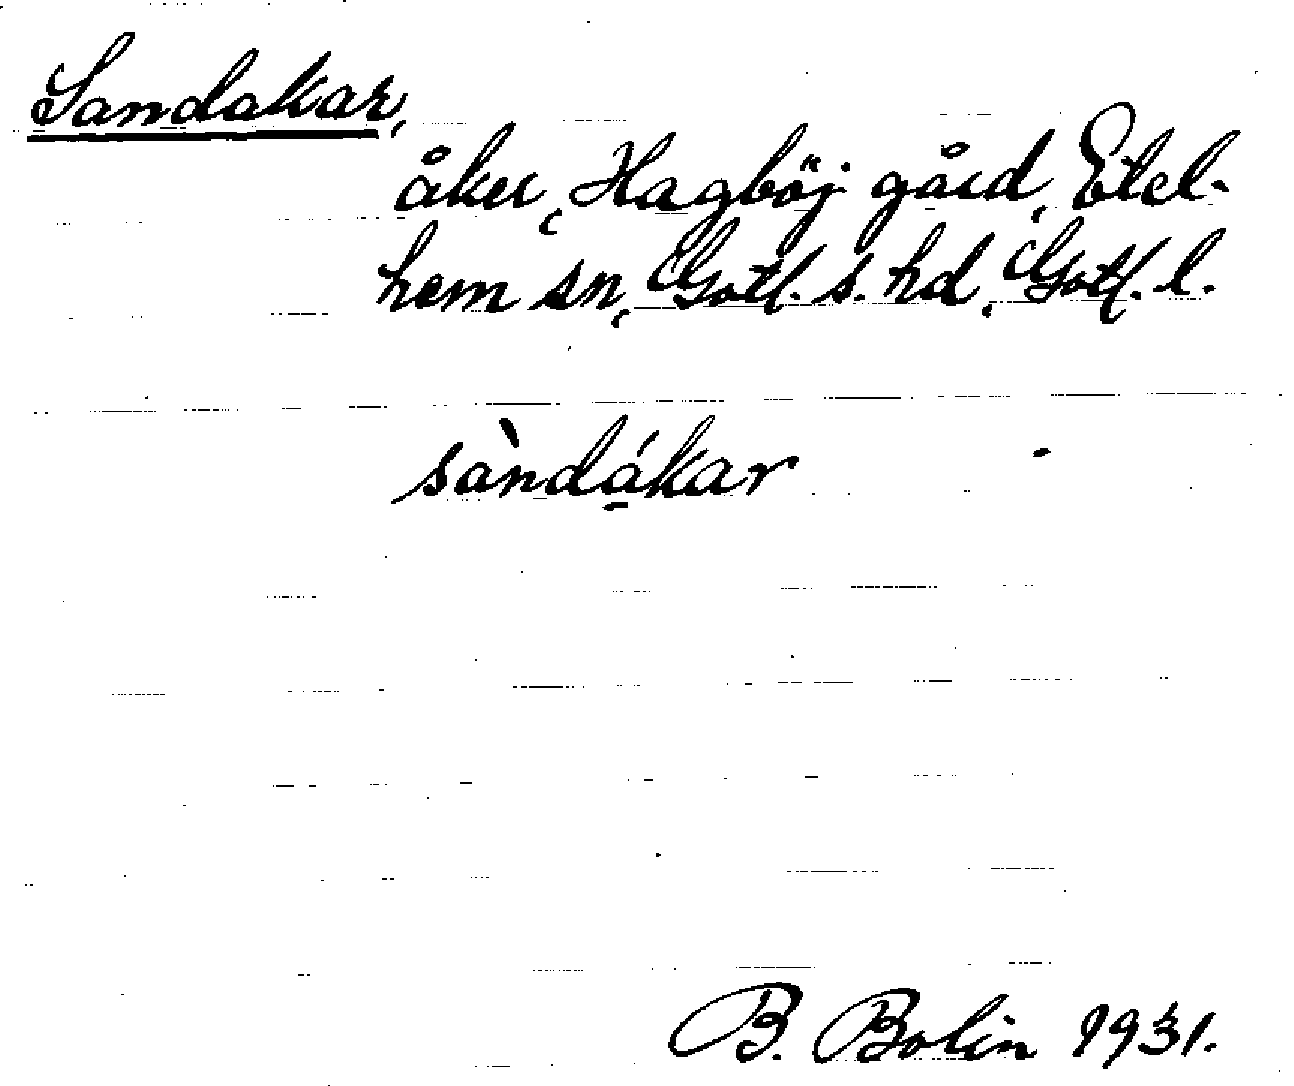 Sandakar,
åker, Hagböj gård, Etel-
hem sn, Gotl. s. hd, Gotl. l.
sàndá̱kar
B. Bolin 1931.